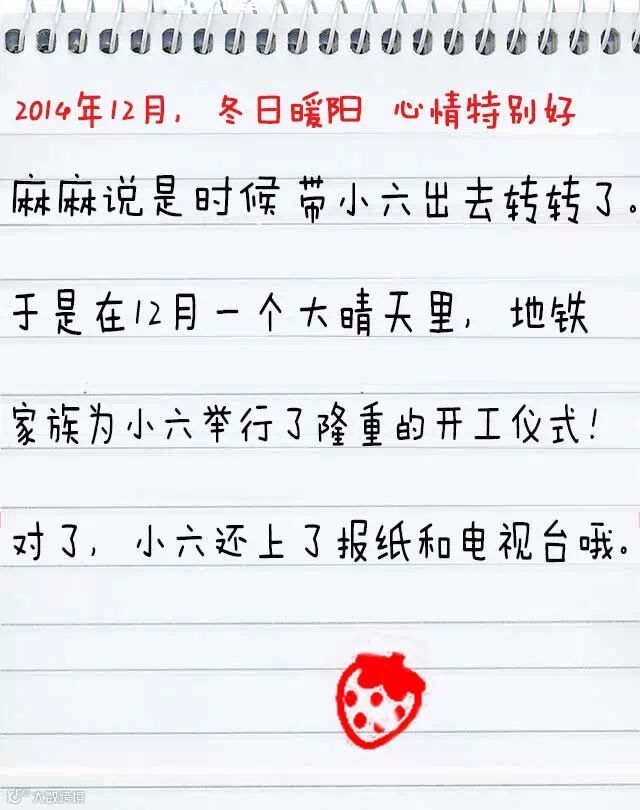 2014年12月，冬日暖阳 心情特别好
麻麻说是时候带小六出去转转了。
于是在12月一个大晴天里，地铁
家族为小六举行了隆重的开工仪式！
对了，小六还上了报纸和电视台哦。
大数跨境